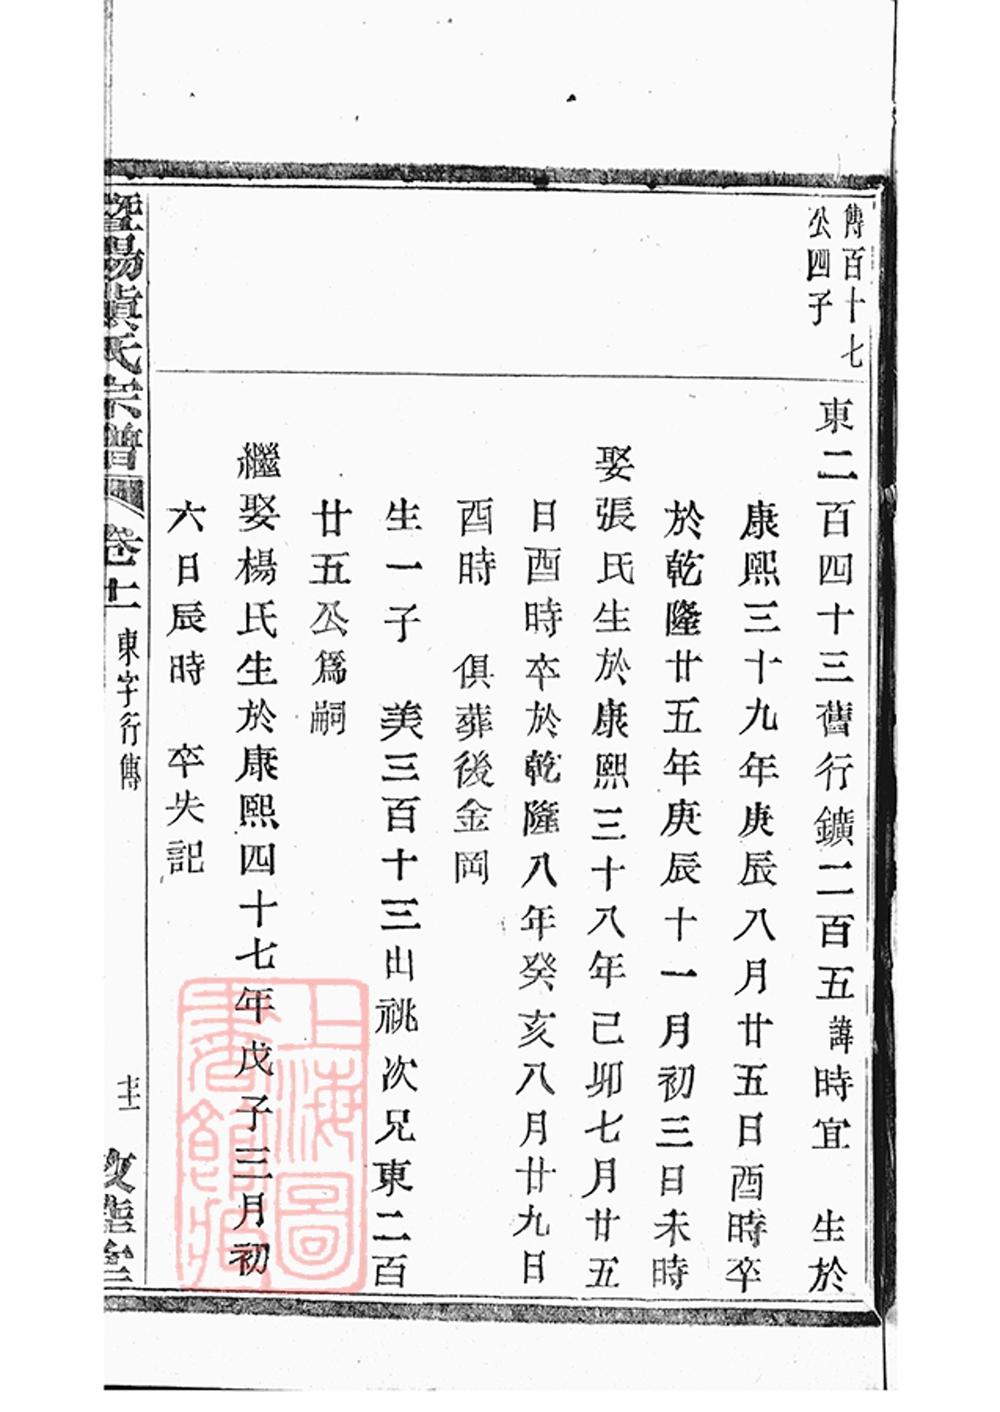 傳百十七
公四子
東二百四十三舊行鑛二百五諱時宜　生於
康熙三十九年庚辰八月廿五日酉時卒
於乾隆廿五年庚辰十一月初三日未時
娶張氏生於康熙三十八年己卯七月廿五
日酉時卒於乾隆八年癸亥八月廿九日
酉時　俱葬後金岡
生一子　美三百十三出祧次兄東二百
廿五公爲嗣
繼娶楊氏生於康熙四十七年戊子三月初
六日辰時　卒失記
暨陽宗譜
卷十一
東字行傳
上海圖書館藏